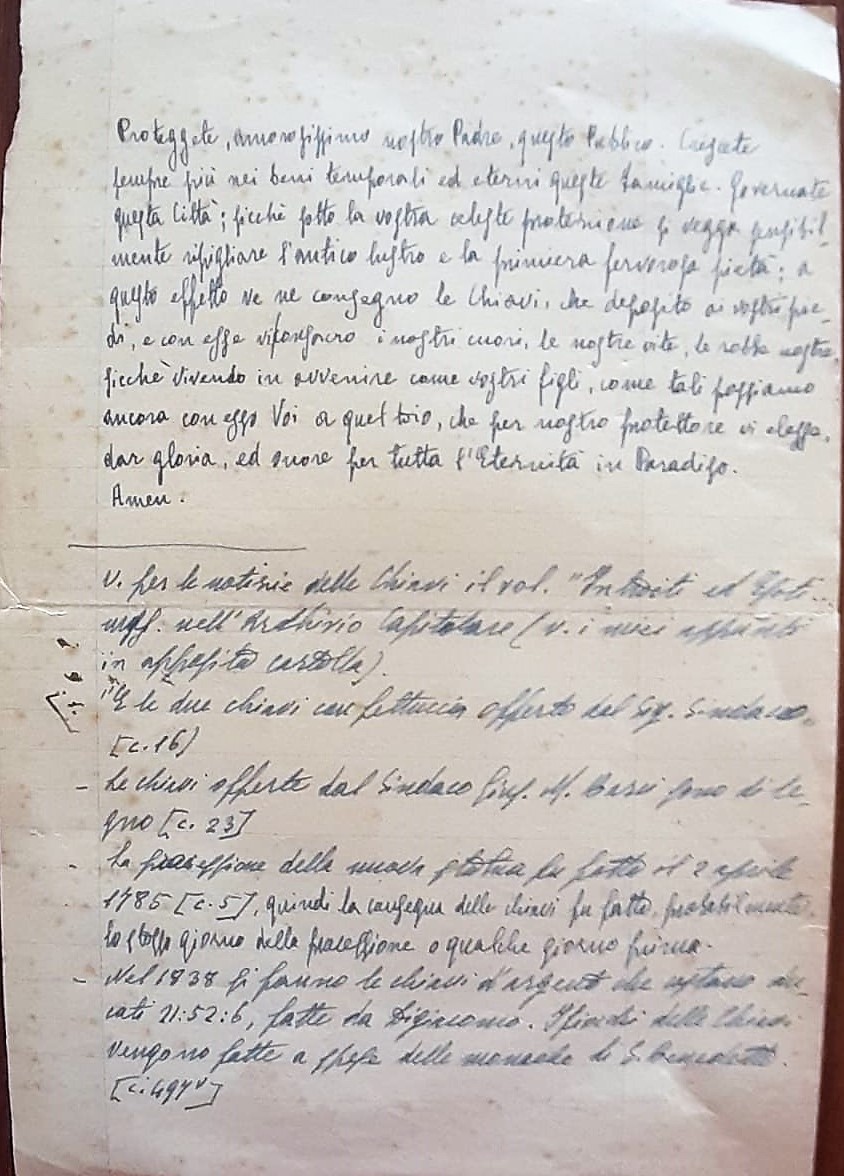 Proteggete, amorosissimo nostro Padre, questo Pubblico. Crescete
sempre più nei beni temporali ed eterni queste famiglie. Governate
questa Città; sicchè sotto la vostra celeste protezione si vegga sensibil-
mente ripigliare l'antico lustro e la primiera fervorosa pietà; a
questo effetto ve ne consegno le Chiavi, che deposito ai vostri pie-
di, e con esse vi consacro i nostri cuori, le nostre vite, le robbe nostre,
sicchè vivendo in avvenire come vostri figli, come tali possiamo
ancora con esso Voi a quel Dio, che per nostro protettore vi elesse,
dar gloria, ed onore per tutta l'Eternità in Paradiso.
Amen.
V. per le notizie delle Chiavi il vol. "Introiti ed Esiti..
mss. nell'Archivio Capitolare (v. i miei appunti
in apposita cartella).
"E le due chiavi con fettuccia offerte dal Sig. Sindaco.
[c. 16)
- Le chiavi offerte dal Sindaco Gius. M. sono di le-
gno [c. 23]
- La processione della nuova statua fu fatta il 2 aprile
1785 [c. 5], quindi la consegna delle chiavi fu fatta, probabilmente,
lo stesso giorno della processione o qualche giorno prima.
- Nel 1838 si fanno le chiavi d'argento che costano du-
cati 21:52:6, fatte da Digiacomo. I fiocchi delle Chiavi
vengono fatte a spese delle monache di S. Benedetto.
[c. 497v]